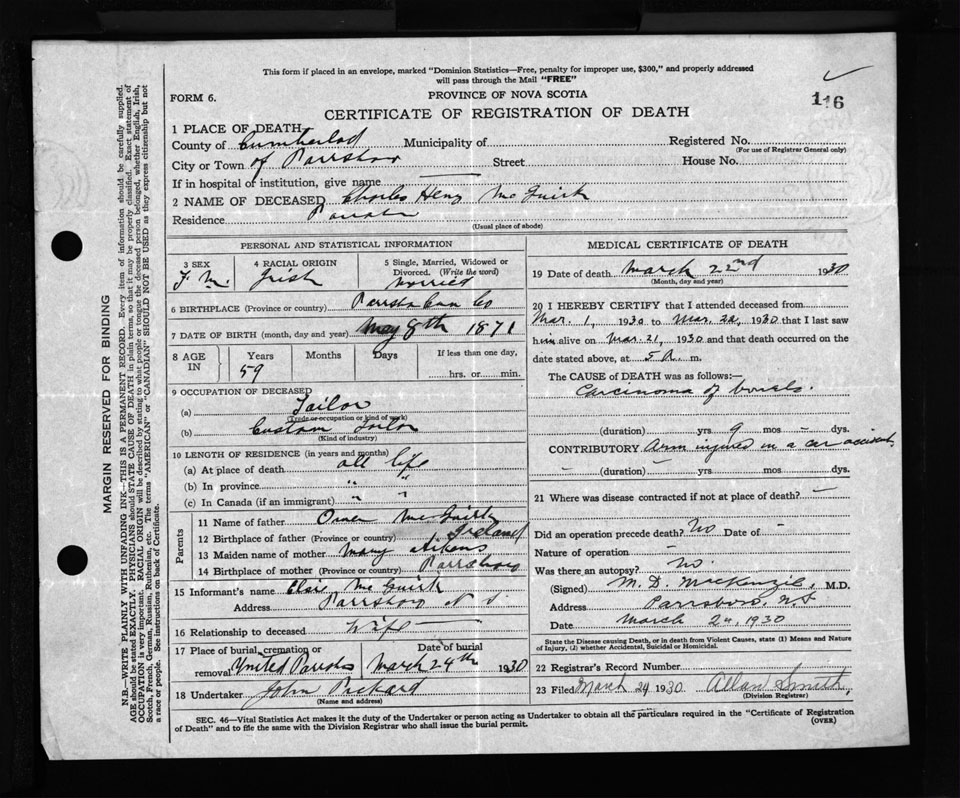 This form if placed in an envelope, marked "Dominion Statistics—Free, penalty for improper use, $300," and properly addressed
will pass through the Mail "FREE"
FORM 6.
PROVINCE OF NOVA SCOTIA
116
CERTIFICATE OF REGISTRATION OF DEATH
1 PLACE OF DEATH
County of Cumberland Municipality of Registered No.
(For use of Registrar General only)
City or Town of Parrsboro Street House No.
If in hospital or institution, give name —
2 NAME OF DECEASED Charles Henry McGuirk
Residence Parrsboro
(Usual place of abode)
PERSONAL AND STATISTICAL INFORMATION
3 SEX 4 RACIAL ORIGIN 5 Single, Married, Widowed or Divorced. (Write the word)
M. Irish Married
6 BIRTHPLACE (Province or country) Parrsboro Cum Co
7 DATE OF BIRTH (month, day and year) May 8th 1871
8 AGE IN Years Months Days If less than one day,
59 hrs. or min.
9 OCCUPATION OF DECEASED
(a) Tailor
(Trade or occupation or kind of work)
(b) Custom Tailor
(Kind of industry)
10 LENGTH OF RESIDENCE (in years and months)
(a) At place of death all life
(b) In province " "
(c) In Canada (if an immigrant) " "
Parents
11 Name of father Owen McGuirk
12 Birthplace of father (Province or country) Ireland
13 Maiden name of mother Mary Aikens
14 Birthplace of mother (Province or country) Parrsboro
15 Informant's name Elsie McGuirk
Address Parrsboro N S
16 Relationship to deceased Wife
17 Place of burial, cremation or removal Date of burial
United Parrsboro March 24th 1930
18 Undertaker John Pickard
(Name and address)
MEDICAL CERTIFICATE OF DEATH
19 Date of death March 22nd 1930
(Month, day and year)
20 I HEREBY CERTIFY that I attended deceased from
Mar. 1, 1930 to Mar. 22, 1930 that I last saw
him alive on Mar. 21, 1930 and that death occurred on the
date stated above, at 5 A. m.
The CAUSE of DEATH was as follows:—
Carcinoma of bowels.
(duration) yrs 9 mos – dys.
CONTRIBUTORY Arm injured in a car accident
– (duration) – yrs – mos – dys.
21 Where was disease contracted if not at place of death? –
Did an operation precede death? No Date of –
Nature of operation –
Was there an autopsy? No.
(Signed) M. D. MacKenzie, M.D.
Address Parrsboro, N.S
Date March 1930
State the Disease causing Death, or in death from Violent Causes, state (1) Means and Nature
of Injury, (2) whether Accidental, Suicidal or Homicidal.
22 Registrar's Record Number
23 Filed March 24 1930 Allan Smith,
(Division Registrar)
SEC. 46—Vital Statistics Act makes it the duty of the Undertaker or person acting as Undertaker to obtain all the particulars required in the "Certificate of Registration
of Death" and to file the same with the Division Registrar who shall issue the burial permit.
(OVER)
MARGIN RESERVED FOR BINDING
N.B.—WRITE PLAINLY WITH UNFADING INK—THIS IS A PERMANENT RECORD. Every item of information should be carefully supplied.
AGE should be stated EXACTLY. PHYSICIANS should STATE CAUSE OF DEATH in plain terms, so that it may be properly classified. Exact statement of
OCCUPATION is very important. RACIAL ORIGIN will be described by stating to what people or tongue the deceased person belonged, whether English, Irish,
Scotch, French, German, Russian, Ruthenian, etc. The terms "AMERICAN" or "CANADIAN" SHOULD NOT BE USED as they express citizenship but not
a race or people. See instructions on back of Certificate.